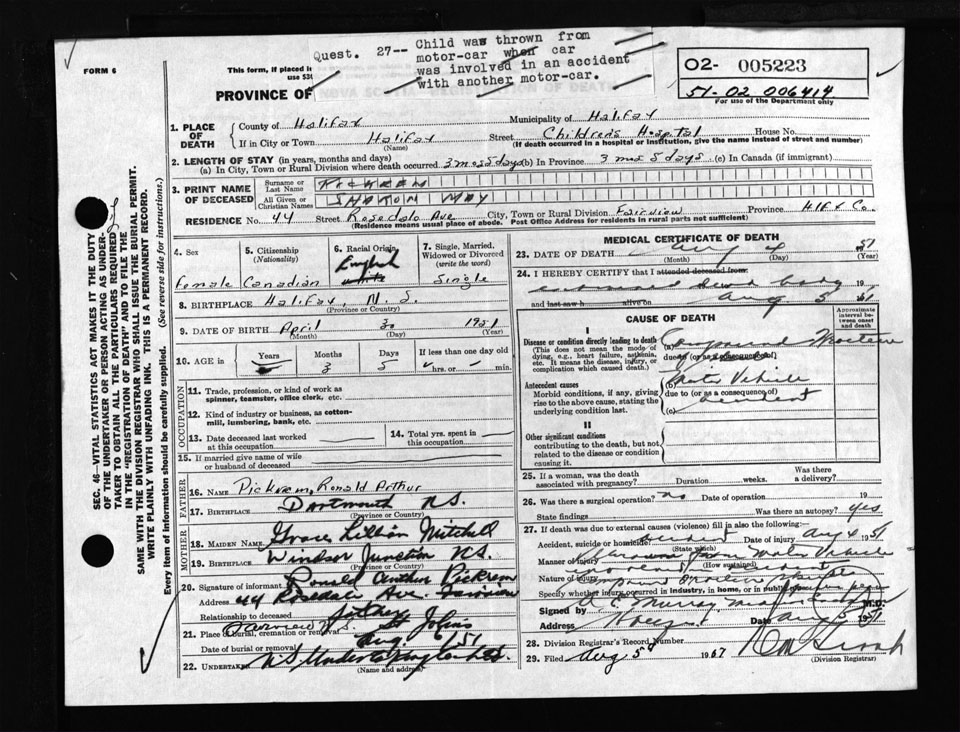 Quest. 27-- Child was thrown from
motor-car when car
was involved in an accident
with another motor-car.
FORM 6
This form, if placed i
use $30
PROVINCE OF
02- 005223
51-02 006414
For use of the Department only
SEC. 46—VITAL STATISTICS ACT MAKES IT THE DUTY
OF THE UNDERTAKER OR PERSON ACTING AS UNDER-
TAKER TO OBTAIN ALL THE PARTICULARS REQUIRED
IN THE "REGISTRATION OF DEATH" AND TO FILE THE
SAME WITH THE DIVISION REGISTRAR WHO SHALL ISSUE THE BURIAL PERMIT.
WRITE PLAINLY WITH UNFADING INK. THIS IS A PERMANENT RECORD.
Every item of information should be carefully supplied. (See reverse side for instructions.)
1. PLACE OF DEATH
County of Halifax Municipality of Halifax
If in City or Town Halifax Street Childrens Hospital House No.
(Name) (If death occurred in a hospital or institution, give the name instead of street and number)
2. LENGTH OF STAY (in years, months and days)
(a) In City, Town or Rural Division where death occurred 3 mos 5 days (b) In Province 3 mos 5 days (c) In Canada (if immigrant)
3. PRINT NAME OF DECEASED
Surname or Last Name PICKREM
All Given or Christian Names SHARON MAY
RESIDENCE No. 44 Street Rosedale Ave City, Town or Rural Division Fairview Province Hlfx Co.
(Residence means usual place of abode. Post Office Address for residents in rural parts not sufficient)
4. Sex
Female
5. Citizenship (Nationality)
Canadian
6. Racial Origin
English
white
7. Single, Married, Widowed or Divorced (write the word)
Single
8. BIRTHPLACE Halifax, N.S.
(Province or Country)
9. DATE OF BIRTH April 30 1951
(Month) (Day) (Year)
10. AGE in Years Months Days If less than one day old
3 5 hrs. or min.
OCCUPATION
11. Trade, profession, or kind of work as spinner, teamster, office clerk, etc.
12. Kind of industry or business, as cotton-mill, lumbering, bank, etc.
13. Date deceased last worked at this occupation
14. Total yrs. spent in this occupation
15. If married give name of wife or husband of deceased
FATHER
16. NAME Pickrem, Ronald Arthur
17. BIRTHPLACE Dartmouth N.S.
(Province or Country)
MOTHER
18. MAIDEN NAME Grace Lillian Mitchell
19. BIRTHPLACE Windsor Junction N.S.
(Province or Country)
20. Signature of informant Ronald Arthur Pickrem
Address 44 Rosedale Ave. Fairview
Relationship to deceased father
21. Place of burial, cremation or removal Fairview N.S. St Johns
Date of burial or removal Aug 6/51
22. UNDERTAKER N S Undertaking Co Ltd.
(Name and address)
MEDICAL CERTIFICATE OF DEATH
23. DATE OF DEATH Aug 4 1951
(Month) (Day) (Year)
24. I HEREBY CERTIFY that I attended deceased from
examined dead body 19
and last saw h alive on Aug 5 51
CAUSE OF DEATH
Approximate interval between onset and death
I
Disease or condition directly leading to death
(This does not mean the mode of dying, e.g., heart failure, asthenia, etc. It means the disease, injury, or complication which caused death.)
(a) Compound Fracture
due to (or as a consequence of)
Antecedent causes
Morbid conditions, if any, giving rise to the above cause, stating the underlying condition last.
(b) Motor Vehicle
due to (or as a consequence of)
(c) accident
II
Other significant conditions
contributing to the death, but not related to the disease or condition causing it.
25. If a woman, was the death associated with pregnancy? Duration weeks. Was there a delivery?
26. Was there a surgical operation? no Date of operation 19
State findings Was there an autopsy? yes
27. If death was due to external causes (violence) fill in also the following:
Accident, suicide or homicide? accident Date Aug 4 1951
(State which)
Manner of injury from Motor Vehicle
(How sustained)
Nature of injury Compound fracture
Specify whether injury occurred in industry, in home, or in public
Signed by A C Murray M.D.
Address Date 1951
28. Division Registrar's Record Number
29. Filed Aug 5th
(Division Registrar)